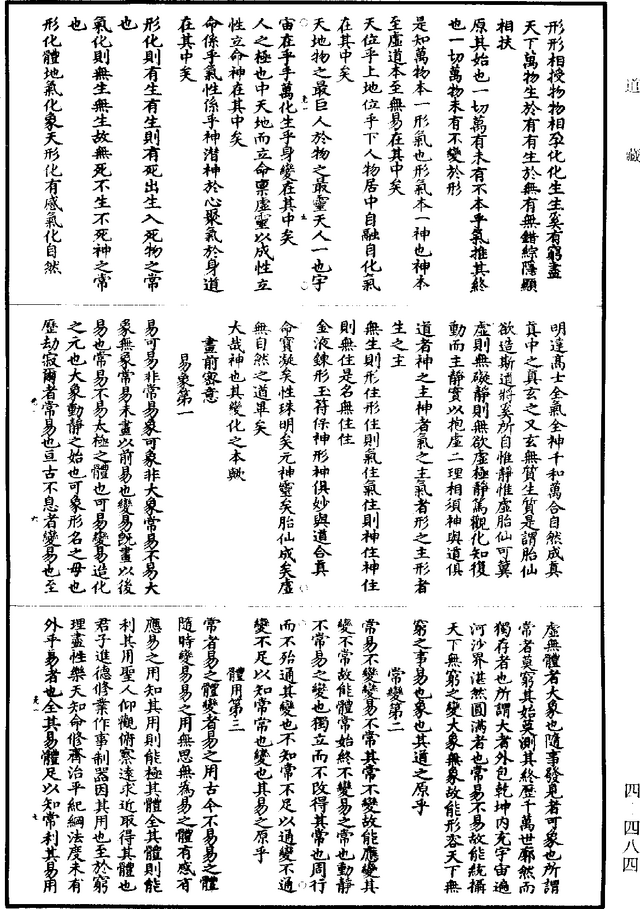 道藏
形形相授物物相孕化化生生奚有窮盡
天下萬物生於有有生於無有無錯綜隱顯
相扶
原其始也一切萬有未有不本乎氣推其終
也一切萬物未有不變於形
是知萬物本一形氣也形氣本一神也神本
至虛道本至無易在其中矣
天位乎上地位乎下人物居中自融自化氣
在其中矣
天地物之最巨人於物之最靈天人一也宇
宙在乎手萬化生乎身變在其中矣
人之極也中天地而立命稟虛靈以成性立
性立命神在其中矣
命係乎氣性係乎神潛神於心聚氣於身道
在其中矣
形化則有生有生則有死出生入死物之常
也
氣化則無生無生故無死不生不死神之常
也
形化體地氣化象天形化有感氣化自然
明達高士全氣全神千和萬合自然成真
真中之真玄之又玄無質生質是謂胎仙
欲造斯道將奚所自惟靜惟虛胎仙可冀
虛則無礙靜則無欲虛極靜篤觀化知復
動而主靜實以抱虛二理相須神與道俱
道者神之主神者氣之主氣者形之主形者
生之主
無生則形住形住則氣住氣住則神住神住
則無住是名無住住
金液鍊形玉符保神形神俱妙與道合真
命寶凝矣性珠明矣元神靈矣胎仙成矣虛
無自然之道畢矣
大哉神也其變化之本歟
畫前密意
易象第一
易可易非常易象可象非大象常易不易大
象無象常易未畫以前易也變易既畫以後
易也常易不易太極之體也可易變易造化
之元也大象動靜之始也可象形名之母也
歷劫寂爾者常易也亘古不息者變易也至
虛無體者大象也隨事發見者可象也所謂
常者莫窮其始莫測其終歷千萬世廓然而
獨存者也所謂大者外包乾坤內充宇宙遍
河沙界湛然圓滿者也常易不易故能統攝
天下無窮之變大象無象故能形容天下無
窮之事易也象也其道之原乎
常變第二
常易不變變易不常其常不變故能應變其
變不常故能體常始終不變易之常也動靜
不常易之變也獨立而不改得其常也周行
而不殆通其變也不知常不足以通變不通
變不足以知常常也變也其易之原乎
體用第三
常者易之體變者易之用古今不易易之體
隨時變易易之用無思無為易之體有感有
應易之用知其用則能極其體全其體則能
利其用聖人仰觀俯察遠求近取得其體也
君子進德修業作事制器因其用也至於窮
理盡性樂天知命修齊治平紀綱法度未有
外乎易者也全其易體足以知常利其易用
四·四八四